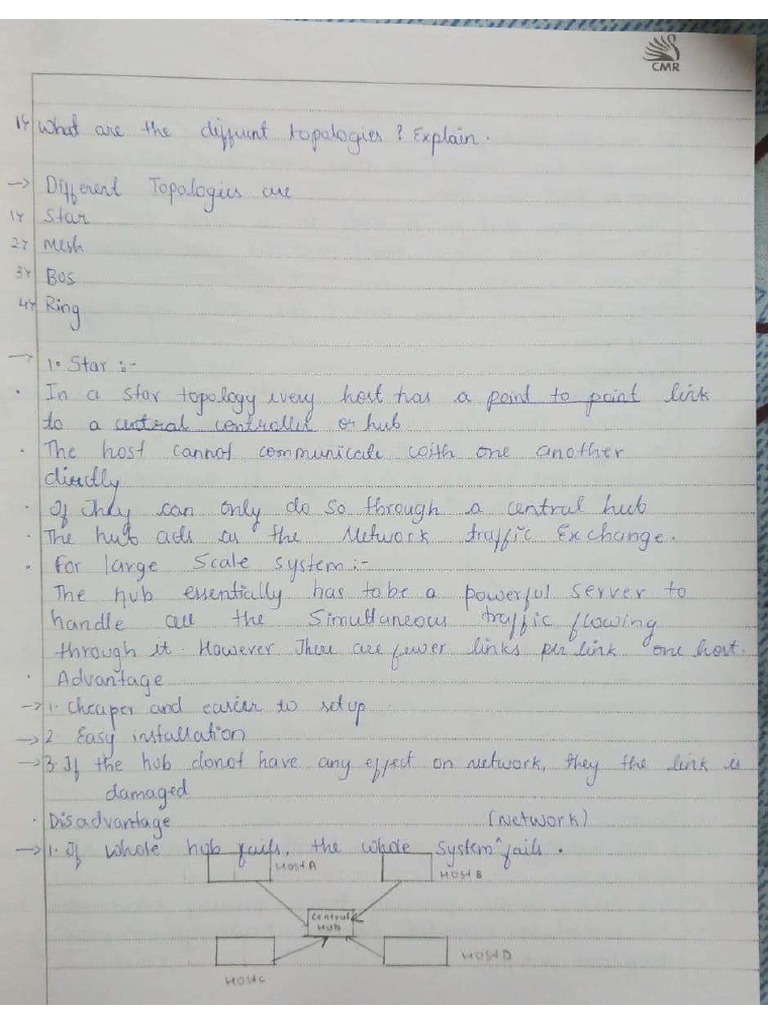 CMR
1) What are the diffirent topologies ? Explain.
→ Different Topologies are
1) Star
2) Mesh
3) Bos
4) Ring
→ 1. Star :-
• In a star topology every host has a point to point link
to a central controller or hub
• The host cannot communicate with one another
directly
• If They can only do so through a central hub
• The hub acts as the Network traffic Exchange.
• For large Scale system :-
The hub essentially has to be a powerful server to
handle all the Simultaneous traffic flowing
through it. However There are fewer links per link one host.
• Advantage
→ 1. Cheaper and easier to setup
→ 2 Easy installation
→ 3. If the hub donot have any effect on network, they the link is
damaged
• Disadvantage (Network)
→ 1. If whole hub fails, the whole system^ fails .
Host A
Host B
Central
Hub
Host C
Host D